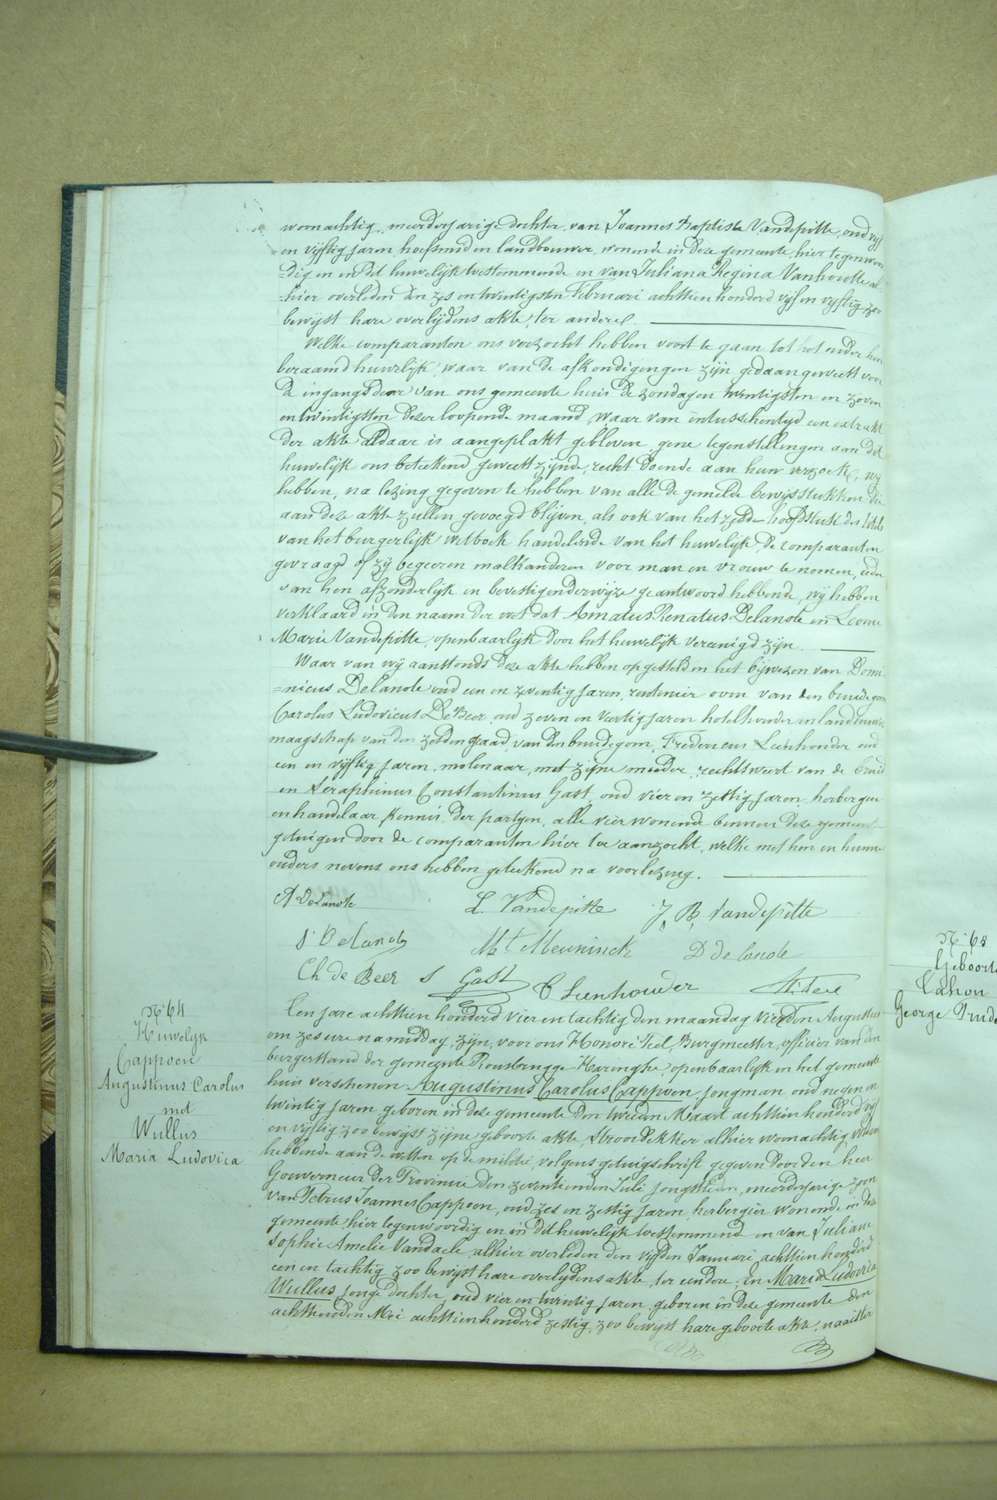 woonachtig, meerderjarige dochter van Joannes Baptiste Vandepitte, oud vyf
en vyftig jaren hoefsmid en landbouwer, wonende in deze gemeente, hier tegenwoor
dig en in dit huwelijk toestemmende en van Juliana Regina Vanhoutte al
hier overleden den zes en twintigsten Februari achttien honderd vijf en vyftig zoo
bewijst hare overlydens akte, ter andere.
Welke comparanten ons verzocht hebben voort te gaan tot het onder hen
beraamd huwelijk, waar van de afkondigingen zijn gedaan geweest voor
de ingangdeur van ons gemeente huis de zondagen twintigsten en zeven
en twintigsten dezer loopende maand, waar van intusschentyd een extrakt
der akte aldaar is aangeplakt gebleven, geene tegenstellingen aan dit
huwelijk ons beteekend geweest zijnde, recht doende aan hun verzoek, wij
hebben, na lezing gegeven te hebben van alle de gemelde bewijsstukken die
aan deze akte zullen gevoegd blijven, als ook van het zesde hoofdstuk des titels
van het burgerlijk wetboek handelende van het huwelijk, de comparanten
gevraagd of zij begeeren malkanderen voor man en vrouw te nemen, ieder
van hen afzonderlijk en bevestigenderwijze geantwoord hebbende, wij hebben
verklaard in den naam der wet dat Amatus Renatus Delanote en Leonie
Marie Vandepitte, openbaarlijk door het huwelijk vereenigd zijn.
Waar van wij aanstonds deze akte hebben opgesteld in het bijwezen van Domi
=nicus Delanote oud een en zeventig jaren, rentenier oom van den bruidegom
Carolus Ludovicus De Beer, oud zeven en veertig jaren hotelhouder en landbouwer
maagschap van den zesden graad, van den bruidegom, Fredericus Leenhouder oud
een en vyftig jaren, molenaar, met zijne moeder, rechtzweer van de bruid
en Seraphinus Constantinus Gast, oud vier en zestig jaren herbergier
en handelaar kennis der partyen, alle vier wonende binnen deze gemeente
getuigen door de comparanten hier toe aanzocht, welke met hen en hunne
ouders nevens ons hebben geteekend na voorlezing.
A Delanote L. Vandepitte J. B. Vandepitte
S Delanote Mt Meuninck D delanote
Ch de Beer S Gast F Leenhouder
No 64
Huwelyk
Cappoen
Augustinus Carolus
met
Wullus
Maria Ludovica
Een jare achttien honderd vier en tachtig den maandag vierden Augustus
om zes ure namiddag, zijn, voor ons Honoré Feel, Burgmeester, officier van den
burgerstand der gemeente Rousbrugge Haringhe, openbaarlijk in het gemeente
huis verschenen Augustinus Carolus Cappoen, jongman oud negen en
twintig jaren geboren in deze gemeente den tweeden Maart achttien honderd vyf
en vyftig zoo bewijst zijne geboorte akte, Stroodekker alhier woonachtig, voldaan
hebbende aan de wetten op de militie, volgens getuigschrift gegeven door den heer
Gouverneur der Provincie den zeventienden Juli jongstleden, meerderjarige zoon
van Petrus Joannes Cappoen, oud zes en zestig jaren, herbergier wonende in deze
gemeente, hier tegenwoordig en in dit huwelijk toestemmend en van Juliana
Sophie Amelie Vandaele, alhier overleden den vyfden Januari achttien honderd
een en tachtig zoo bewijst hare overlydens akte, ter eendere. En Maria Ludovica
Wullus jonge dochter, oud vier en twintig jaren, geboren in deze gemeente den
achttienden Mei achttienhonderd zestig, zoo bewijst hare geboorte akte, naaister
No 65
Geboorte
Cahon
George